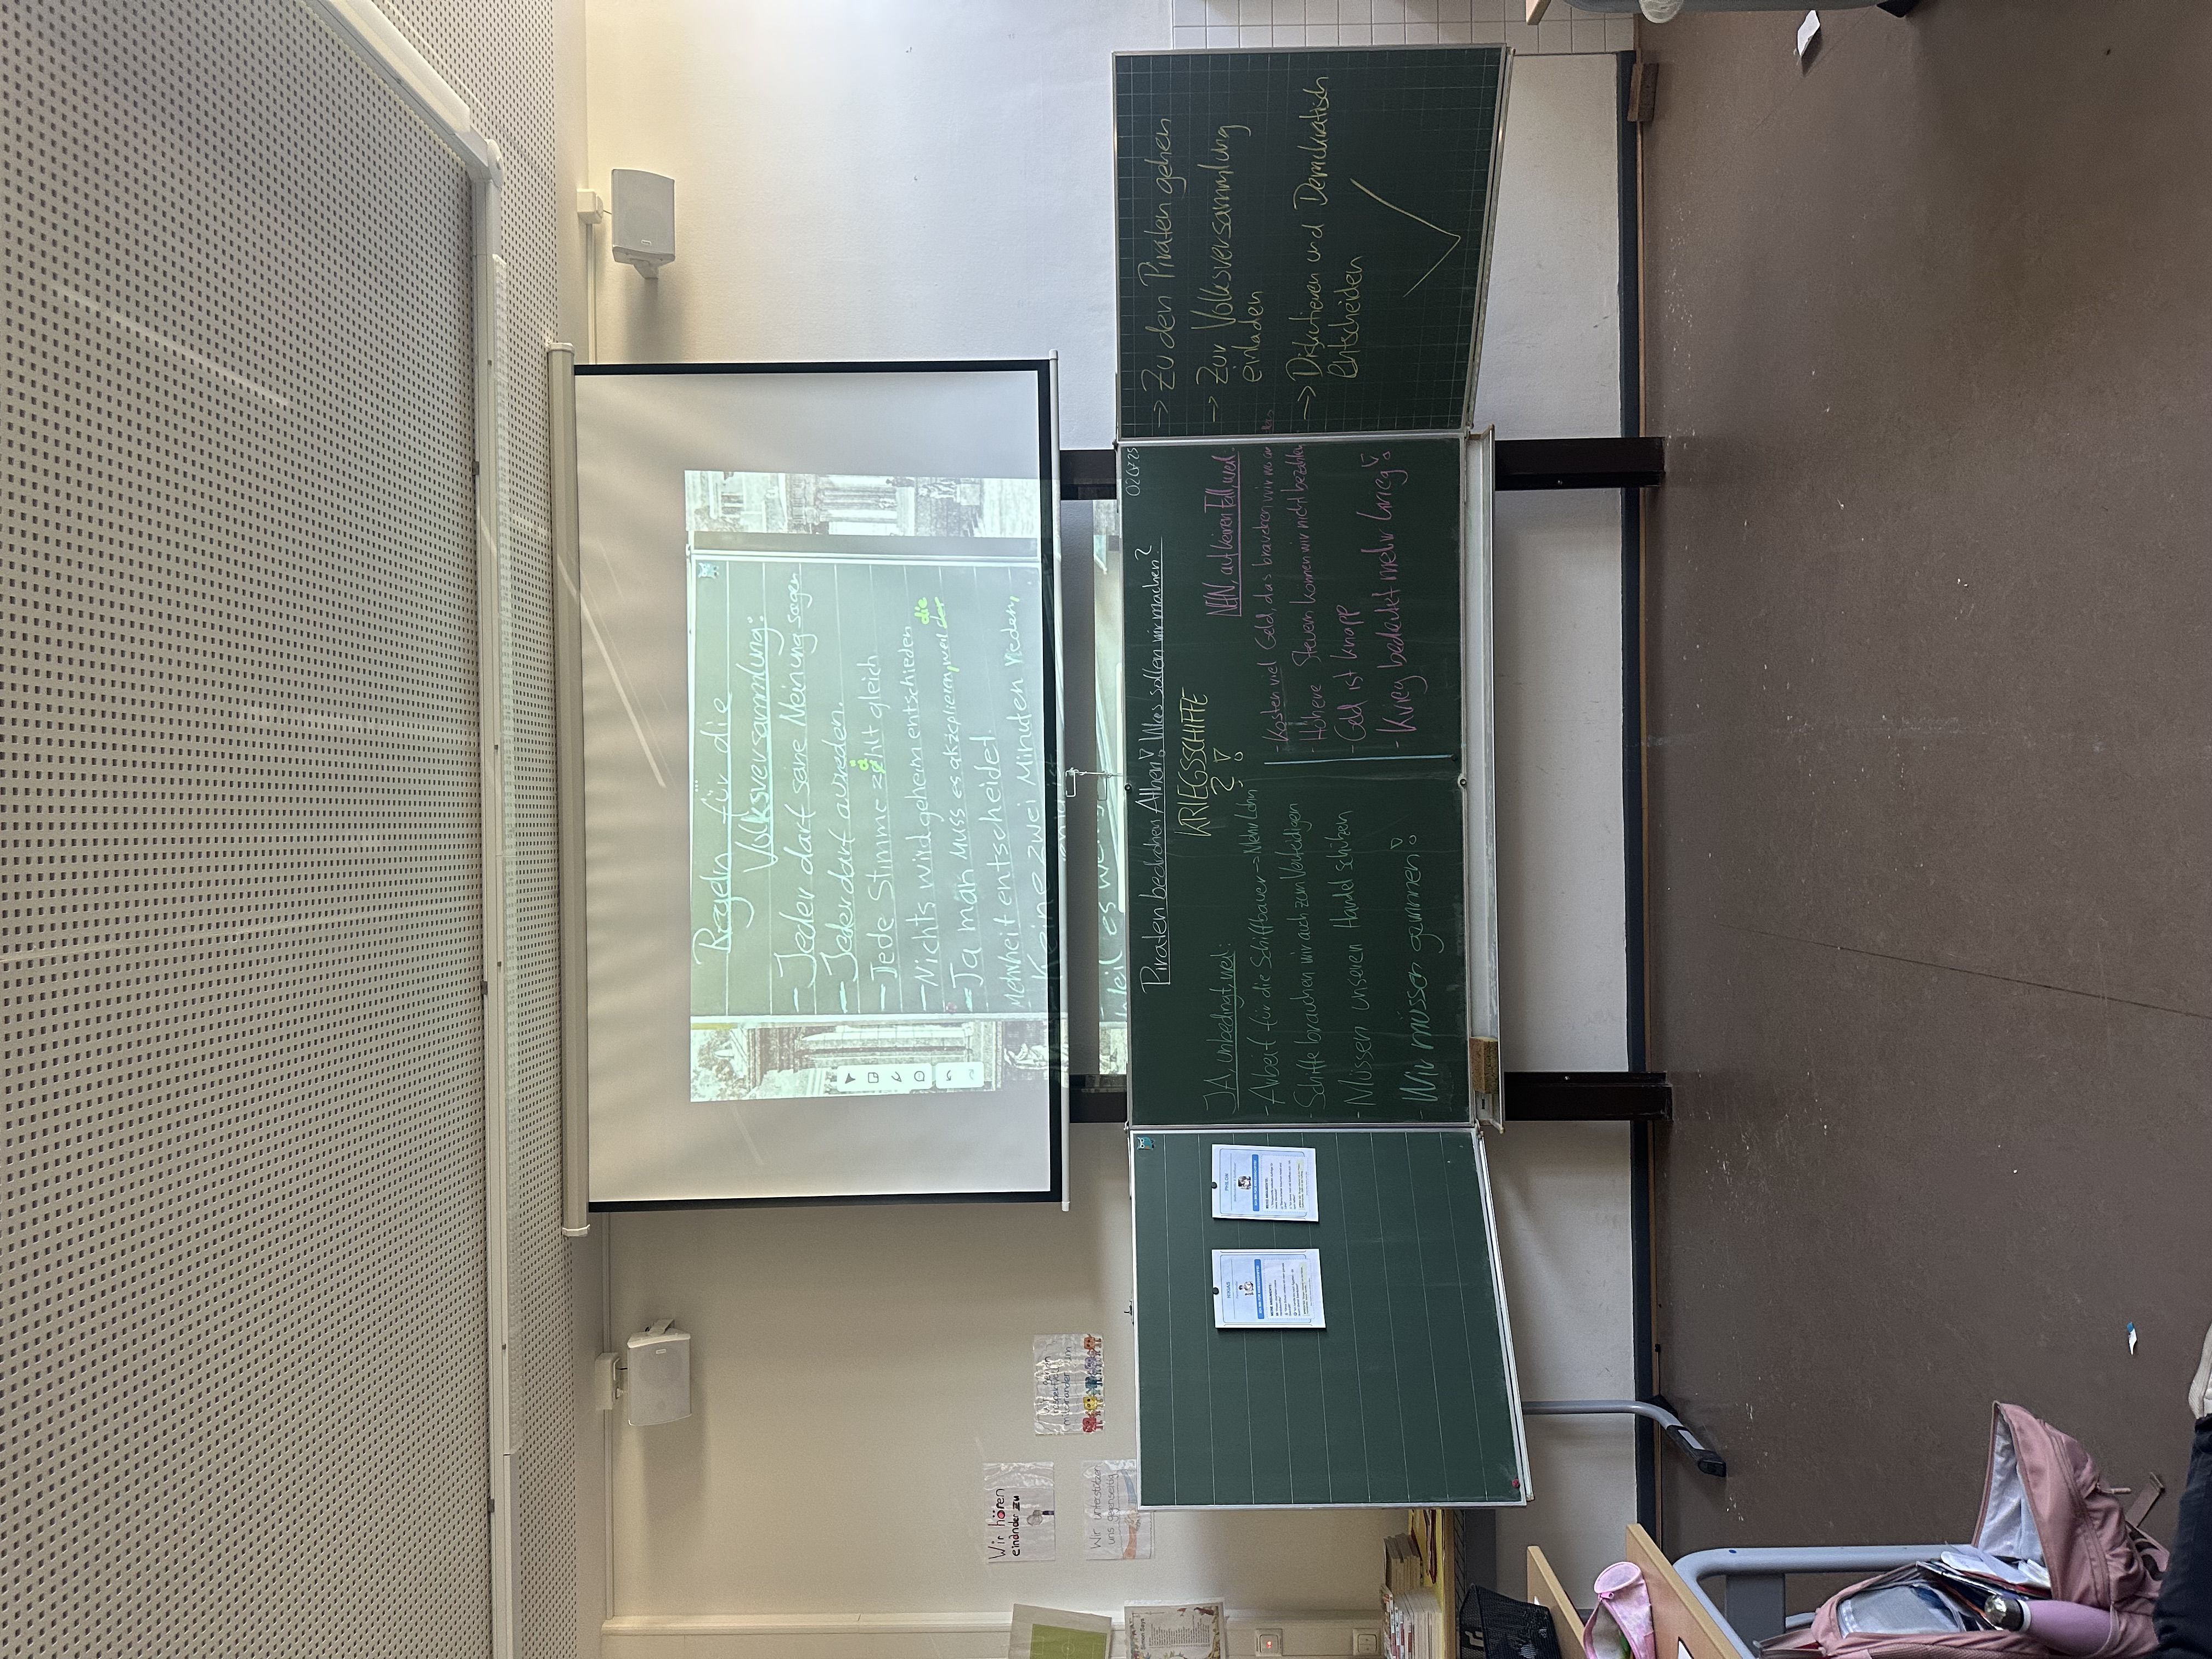 Regeln für die
Volksversammlung:
- Jeder darf seine Meinung sagen
- Jeder darf ausreden.
- Jede Stimme zählt gleich
- Nichts wird geheim entschieden
die
- Ja man muss es akzeptieren, weil der
Mehrheit entscheidet.
- Keine zwei Minuten rieden,
weil es wenig ist
Wir hören
einander zu
miteinander um
Wir unterstützen
uns gegenseitig
Simon Says
NIKIAS
ICH BIN FÜR KRIEGSSCHIFFE!
MEINE ARGUMENTE:
PHILON
ICH BIN FÜR KRIEGSSCHIFFE!
MEINE ARGUMENTE:
Piraten bedrohen Athen! Was sollen wir machen?
02.07.25
KRIEGSSCHIFFE
? !
JA, unbedingt, weil:
- Arbeit für die Schiffbauer → Mehr Lohn
- Schiffe brauchen wir auch zum Verteidigen
- Müssen unseren Handel schützen
- Wir müssen gewinnen!
NEIN, auf keinen Fall, weil:
- Kosten viel Geld, das brauchen wir
- Höhere Steuern können wir nicht bezahlen
- Geld ist knapp
- Krieg bedeutet mehr Krieg!
→ Zu den Piraten gehen
→ Zur Volksversammlung
einladen
→ Diskutieren und Demokratisch
Entscheiden